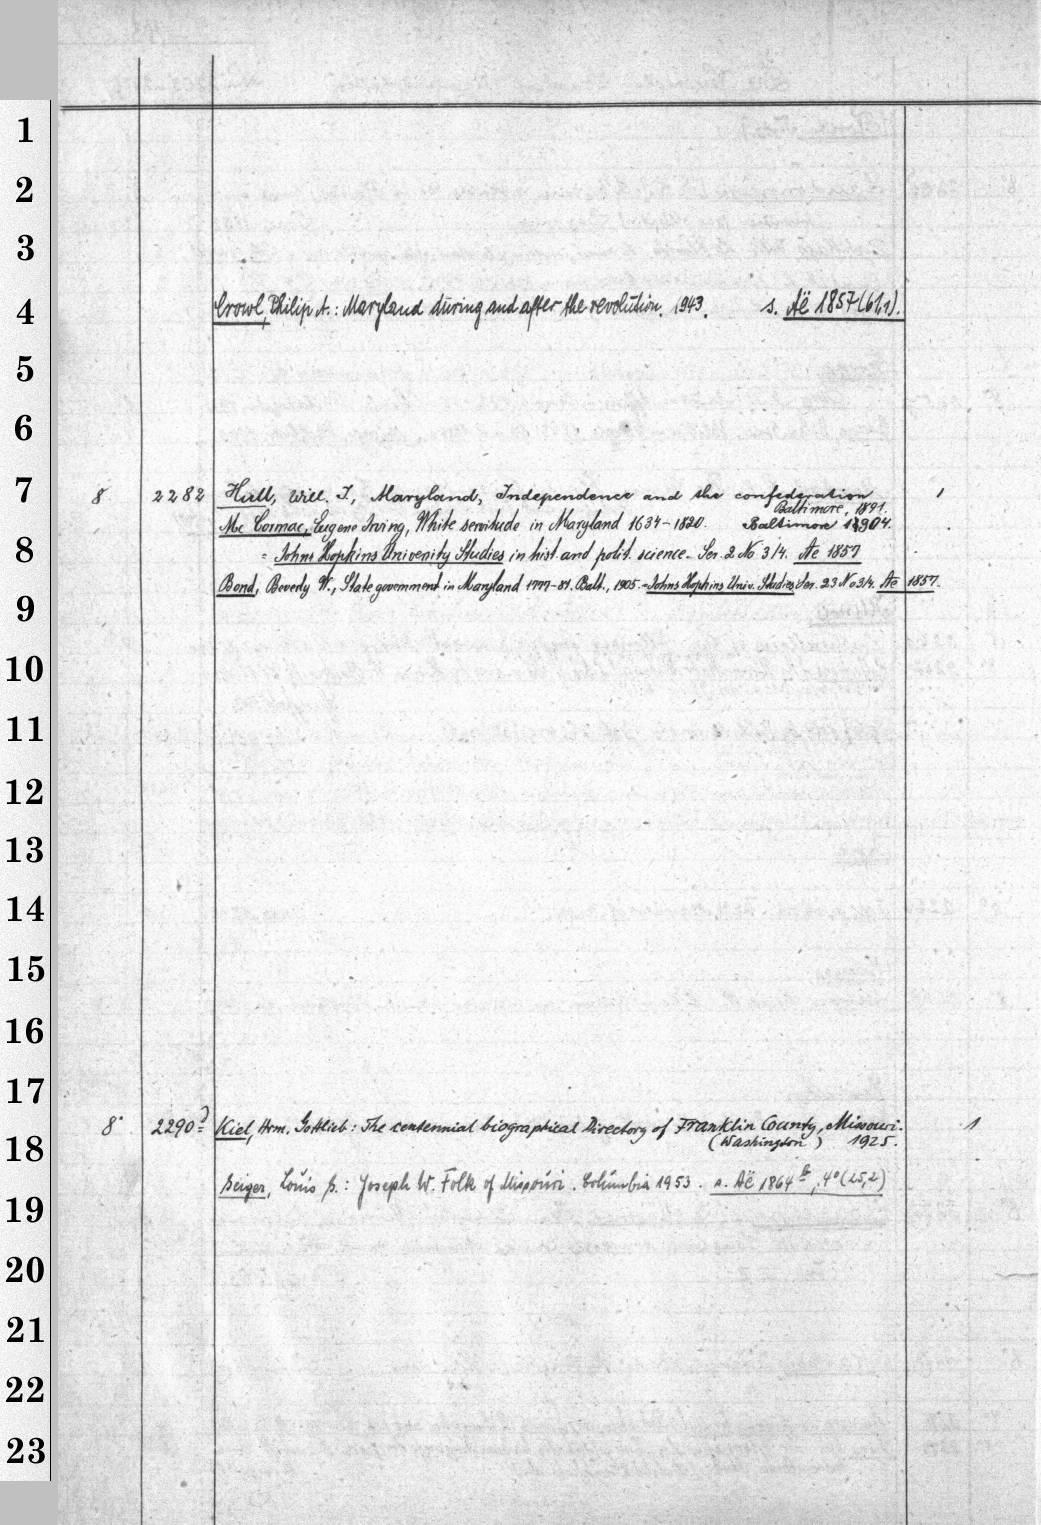 1
2
3
4
Crowl, Philip A.: Maryland during and after the revolution. 1943. s. Aë 1857 (61,1).
5
6
7
8 2282 Hull, Will. I., Maryland, Independence and the confederation 1
Baltimore, 1891.
Mc Cormac, Eugene Irving, White servitude in Maryland 1634-1820. Baltimore 1904.
8
= Johns Hopkins University Studies in hist. and polit. science. Ser. 2 No 3/4. Ae 1857
Bond, Beverly W., State government in Maryland 1777-81. Balt., 1905. = Johns Hopkins Univ. Studies Ser. 23 No 3/4. Ae 1857.
9
10
11
12
13
14
15
16
17
8° 2290 Kiel, Hrm. Gottlieb: The centennial biographical Directory of Franklin County, Missouri. 1
(Washington) 1925.
18
Geiger, Louis G.: Joseph W. Folk of Missouri. Columbia 1953. s. Aë 1864 b, 4° (25,2)
19
20
21
22
23